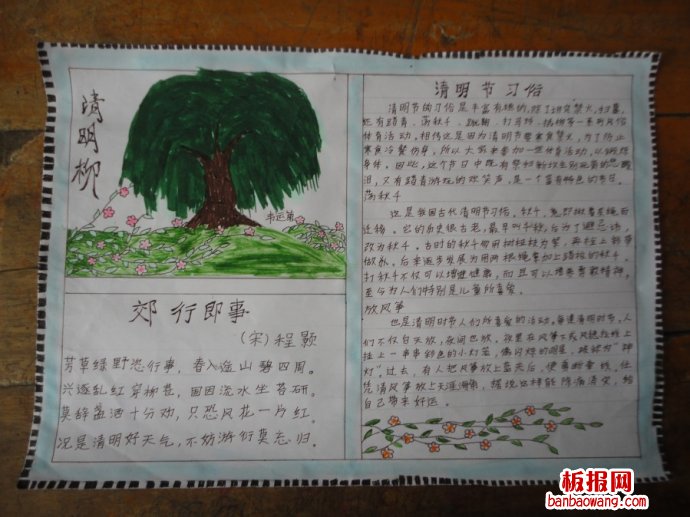 清明柳
韦运第
郊行即事
(宋)程颢
芳草绿野恣行事，春入遥山碧四周。
兴逐乱红穿柳巷，困因流水坐苔矶。
莫辞盏酒十分劝，只恐风花一片红。
况是清明好天气，不妨游衍莫忘归。
清明节习俗
清明节的习俗是丰富有趣的，除了讲究禁火、扫墓，
还有踏青、荡秋千、蹴鞠、打马球、插柳等一系列风俗
体育活动。相传这是因为清明节要寒食禁火，为了防止
寒食冷餐伤身，所以大家来参加一些体育活动，以锻炼
身体。因此，这个节日中既有祭扫新坟生别死离的悲酸
泪，又有踏青游玩的欢笑声，是一个富有特色的节日。
荡秋千
这是我国古代清明节习俗。秋千，意即揪着皮绳而
迁移。它的历史很古老，最早叫千秋，后为了避忌讳，
改为秋千。古时的秋千多用树枝桠为架，再栓上彩带
做成。后来逐步发展为用两根绳索加上踏板的秋千。
打秋千不仅可以增进健康，而且可以培养勇敢精神，
至今为人们特别是儿童所喜爱。
放风筝
也是清明时节人们所喜爱的活动。每逢清明时节，人
们不仅白天放，夜间也放。夜里在风筝下或风稳拉线上
挂上一串串彩色的小灯笼，像闪烁的明星，被称为“神
灯”。过去，有人把风筝放上蓝天后，便剪断牵线，任
凭清风送往天涯海角，据说这样能除病消灾，给
自己带来好运。
板报网
banbaowang.com